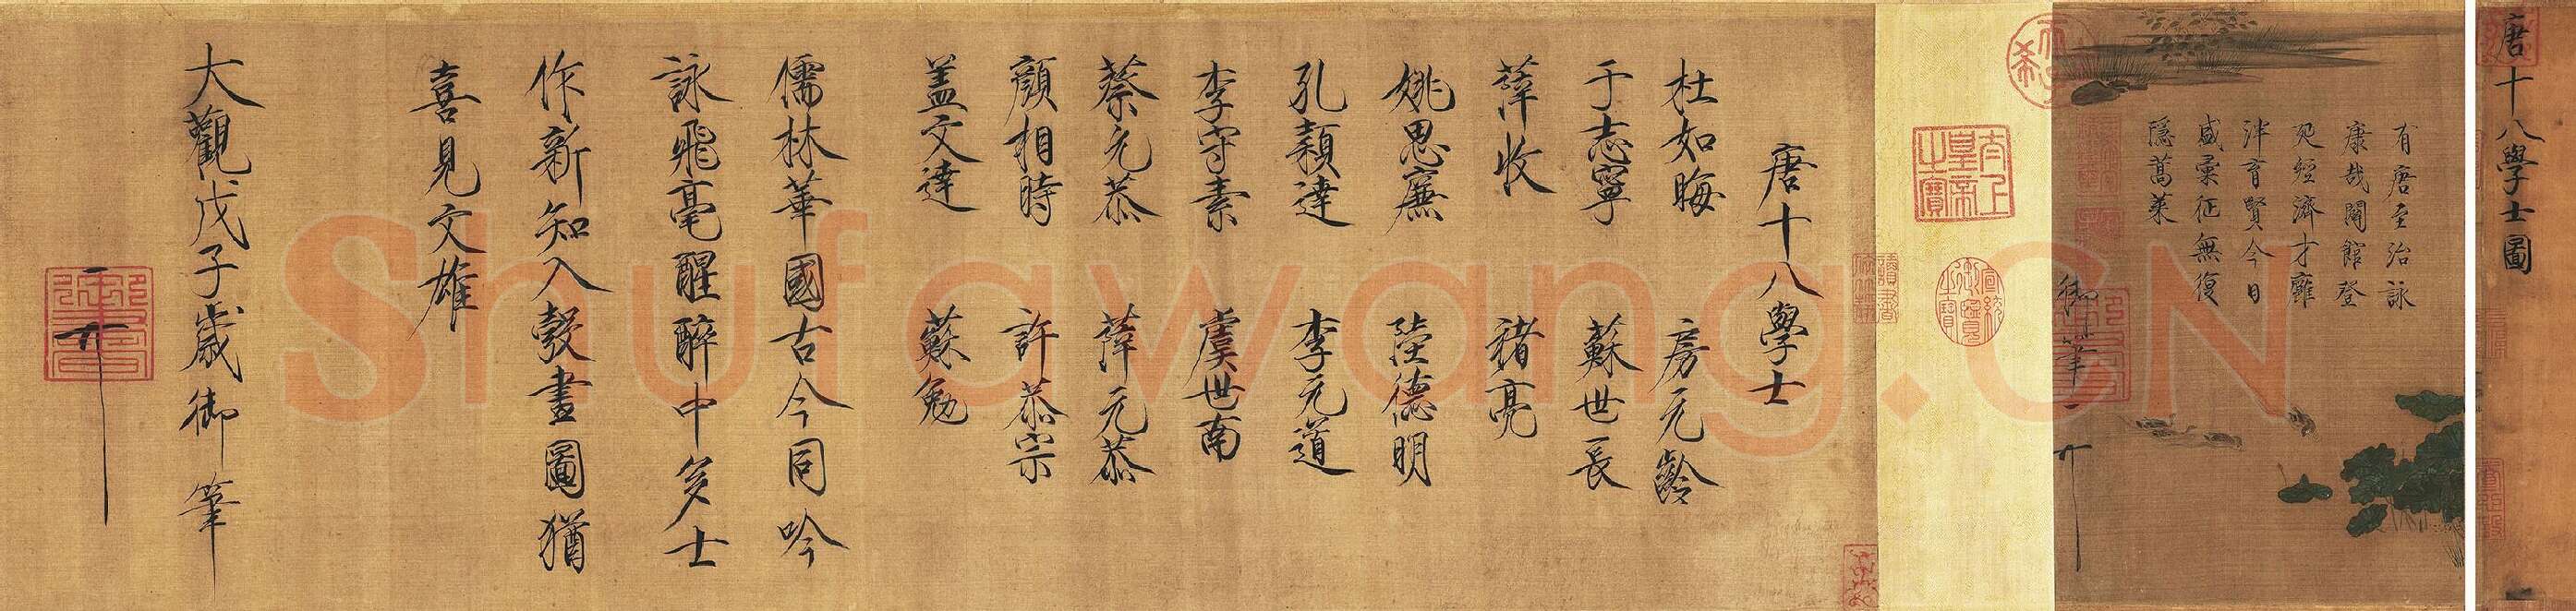 唐十八學士圖
有唐至治詠
康哉闢館登
延經濟才雝
泮育賢今日
盛彙征無復
隱蒿萊
御筆
太上皇帝之寶
宣統御覽之寶
唐十八學士
杜如晦 房元齡
于志寧 蘇世長
薛收 褚亮
姚思廉 陸德明
孔穎達 李元道
李守素 虞世南
蔡允恭 薛元恭
顏相時 許恭宗
盖文達 蘇勉
儒林華國古今同吟
詠飛毫醒醉中多士
作新知入彀畫圖猶
喜見文雄
大觀戊子歲御筆
御書
Shufawang.CN